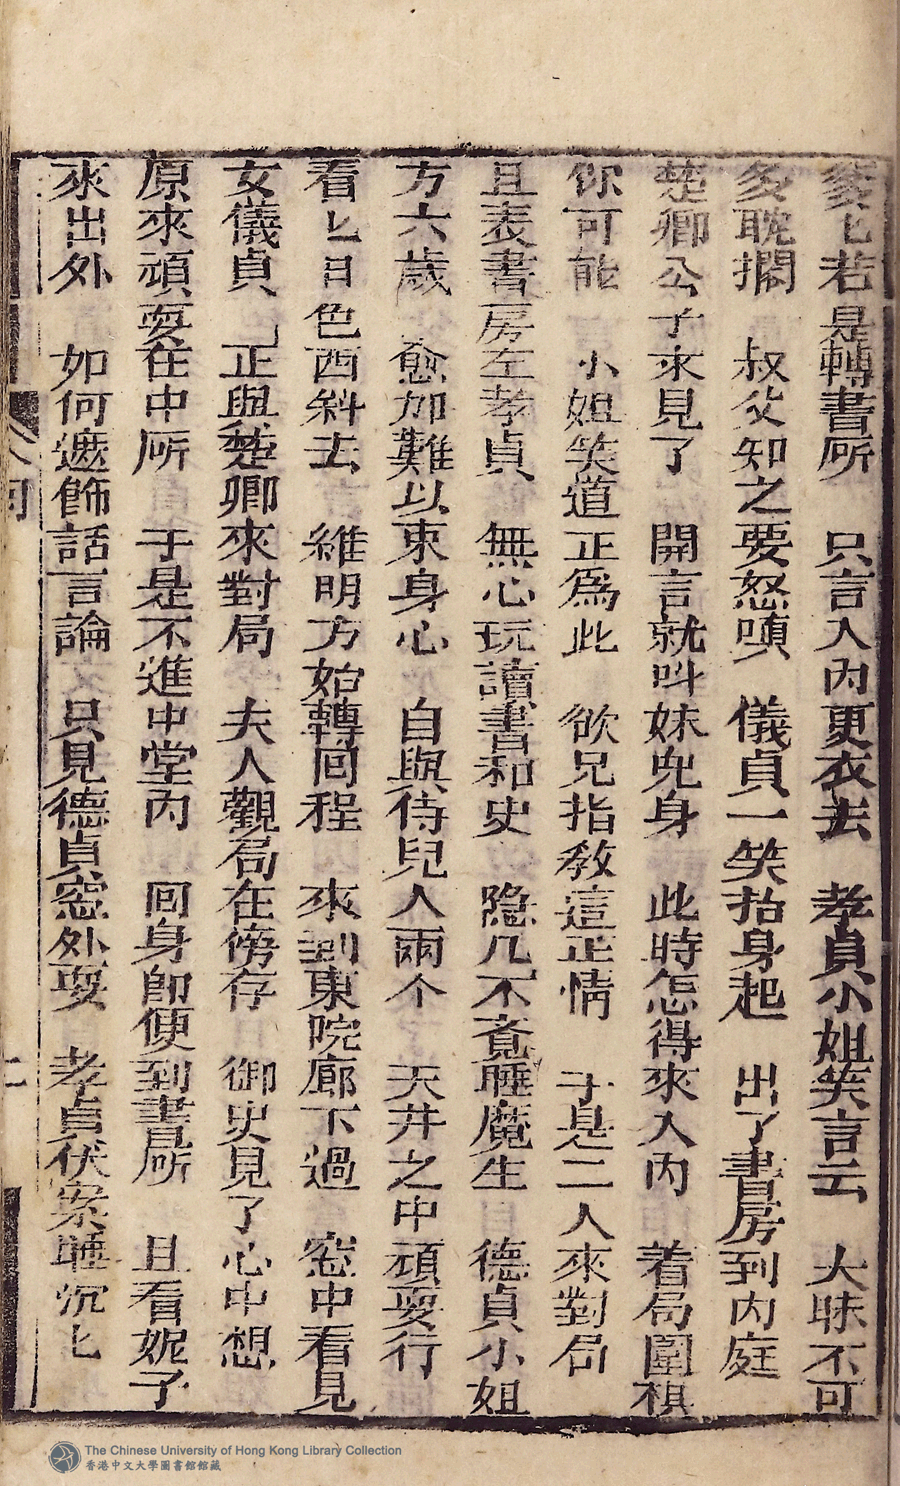 爹匕若是轉書所　只言入內更衣去　孝貞小姐笑言云　大昧不可
多耽擱　叔父知之要怒嗔　儀貞一笑抬身起　出了書房到內庭
楚卿公子來見了　開言就叫妹兠身　此時怎得來入內　着局圍棋
你可能　小姐笑道正為此　欲兄指教這正情　于是二人來對局
且表書房左孝貞　無心玩讀書和史　隐几不覔睡魔生　德貞小姐
方六歲　愈加難以束身心　自與侍兒人兩个　天井之中頑耍行
看匕日色西斜去　維明方始轉回程　來到東院廊下過　窓中看見
女儀貞　正與楚卿來對局　夫人觀局在傍存　御史見了心中想
原來頑耍在中所　于是不進中堂內　回身即便到書所　且看妮子
來出外　如何遮飾話言論　只見德貞窓外耍　孝貞伏案睡沉匕
八回
The Chinese University of Hong Kong Library Collection
香港中文大學圖書館館藏